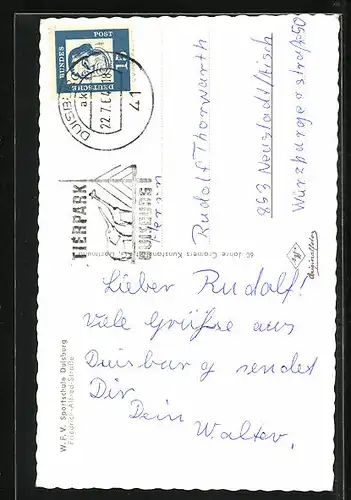 Lieber Rudolf!
Viele Grüße aus
Duisburg sendet
Dir
Dein
Walter.
Herrn
Rudolf Thorwarth
853 Neustadt/Aisch
Würzburgerstraße 50
W.F.V. Sportschule Duisburg
Friedrich-Alfred-Straße
60 Jahre Cramers Kunstanstalt
Originalfoto
DEUTSCHE
BUNDES
POST
15
DUISBURG
22.7.64
41
TIERPARK
DUISBURG